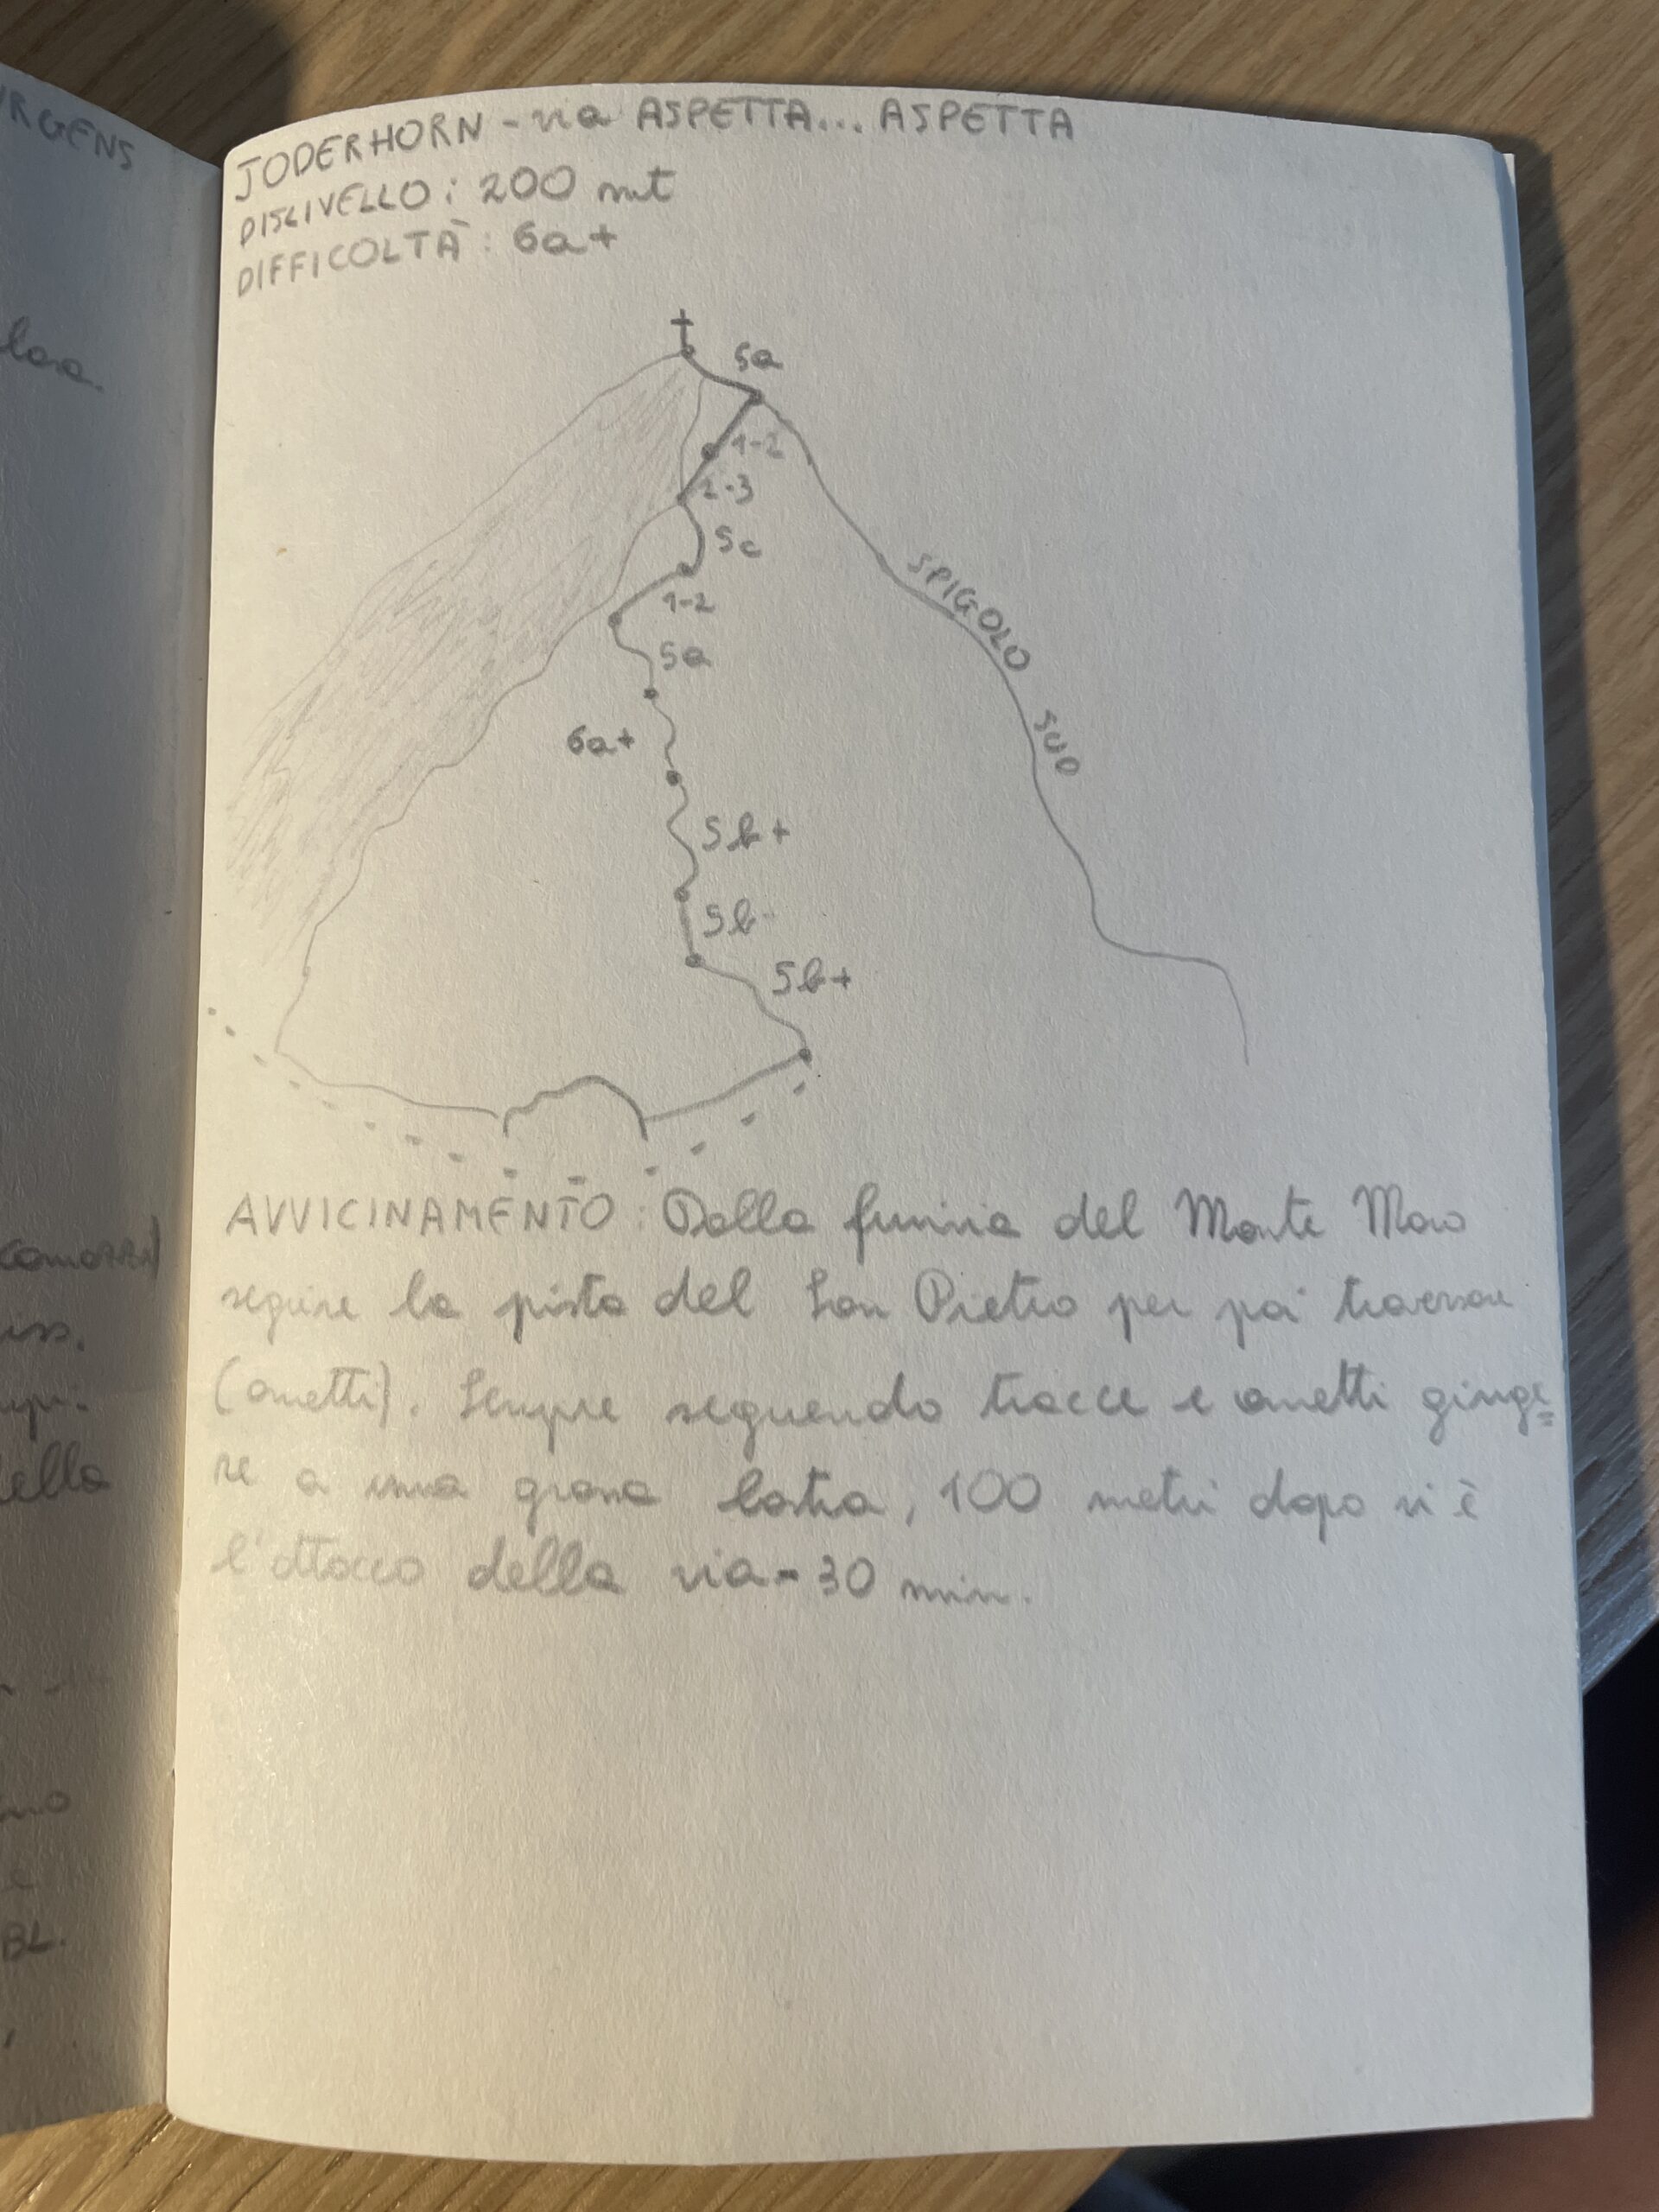 URGENS
losa.
iss.
ella
BL.
JODERHORN - via ASPETTA... ASPETTA
DISLIVELLO: 200 mt
DIFFICOLTÀ: 6a+
5a
1-2
2-3
5c
1-2
5a
6a+
5b+
5b
5b+
SPIGOLO SUD
AVVICINAMENTO: Dalla funivia del Monte Moro
seguire la pista del San Pietro per poi traversare
(ometti). Sempre seguendo tracce e ometti giunge=
re a una grossa lastra, 100 metri dopo vi è
l'attacco della via - 30 min.